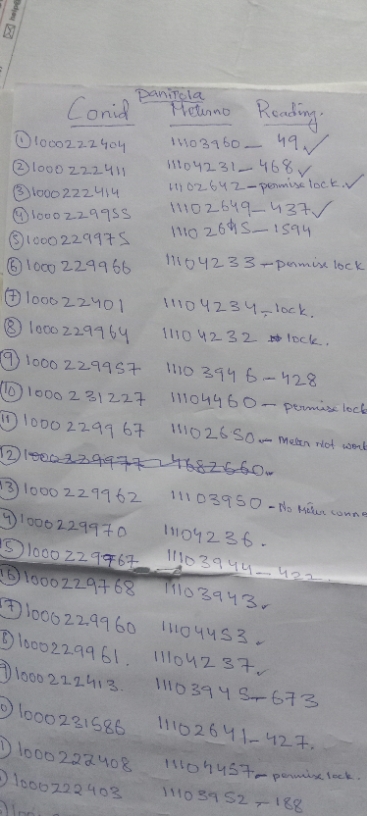 Panitola
Conid Meterno Reading.
① 1000222404 11103960 - 49 ✓
② 1000222411 11104231 - 468 ✓
③ 1000222414 11102642 - permise lock. ✓
④ 1000229955 11102649 - 437 ✓
⑤ 1000229975 11102645 - 1594
⑥ 1000229966 11104233 - permise lock
⑦ 100022401 11104234 - lock.
⑧ 1000229964 11104232 lock.
⑨ 1000229957 11103946 - 428
⑩ 1000231227 11104460 - permise lock
⑪ 1000229967 11102650 - Meter Not work
⑫ 1000329977 4682660
13 1000229962 11103950 - No Meter conne
4 1000229970 11104236.
5 1000229767 11103944 - 422
16 1000229768 11103943
17 1000229960 11104453
8 1000229961. 11104237
9 1000222413. 11103945 - 673
0 1000231586 11102641 - 427.
1000222408 11104457 - permise lock.
1000222403 11103952 - 188